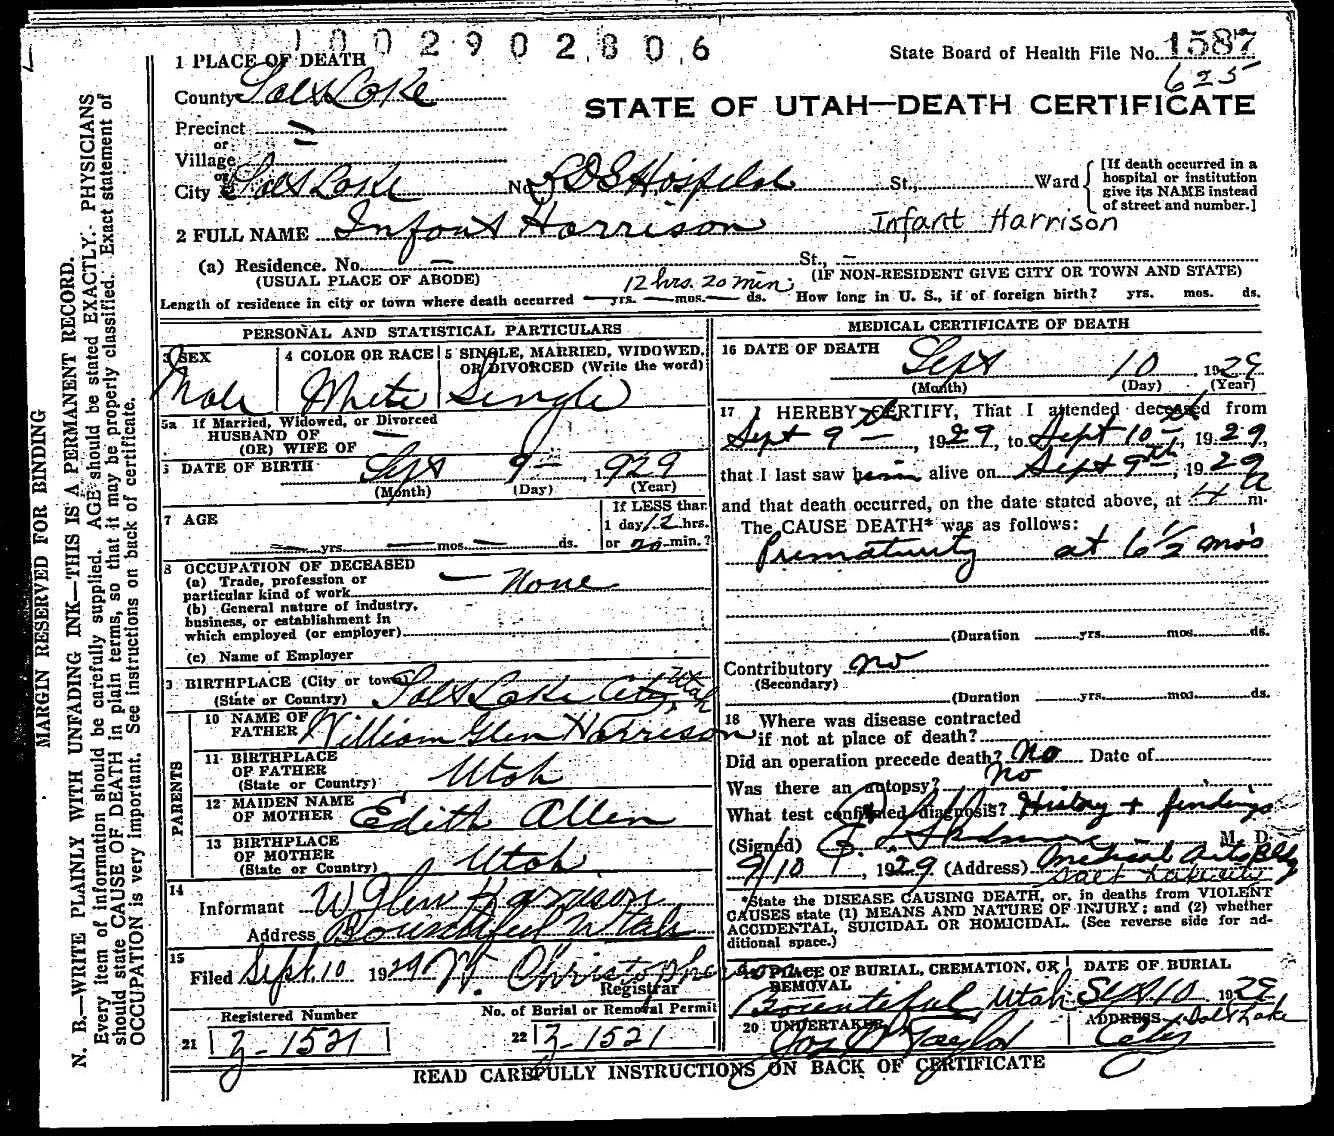 1002902806
State Board of Health File No. 1587
625
1 PLACE OF DEATH
County Salt Lake
STATE OF UTAH—DEATH CERTIFICATE
Precinct
or
Village
or
City Salt Lake No. LDS Hospital St., Ward
[If death occurred in a
hospital or institution
give its NAME instead
of street and number.]
2 FULL NAME Infant Harrison Infant Harrison
(a) Residence. No. — St., —
(USUAL PLACE OF ABODE) 12 hrs. 20 min. (IF NON-RESIDENT GIVE CITY OR TOWN AND STATE)
Length of residence in city or town where death occurred — yrs. — mos. — ds. How long in U. S., if of foreign birth? yrs. mos. ds.
PERSONAL AND STATISTICAL PARTICULARS
3 SEX 4 COLOR OR RACE 5 SINGLE, MARRIED, WIDOWED,
OR DIVORCED (Write the word)
Male White Single
5a If Married, Widowed, or Divorced
HUSBAND OF —
(OR) WIFE OF
6 DATE OF BIRTH Sept 9 — 1929
(Month) (Day) (Year)
7 AGE If LESS than
1 day 12 hrs.
— yrs — mos. — ds. or 20 min.?
8 OCCUPATION OF DECEASED
(a) Trade, profession or
particular kind of work — None
(b) General nature of industry,
business, or establishment in
which employed (or employer)
(c) Name of Employer
9 BIRTHPLACE (City or town)
(State or Country) Salt Lake City, Utah
PARENTS
10 NAME OF
FATHER William Glen Harrison
11 BIRTHPLACE
OF FATHER
(State or Country) Utah
12 MAIDEN NAME
OF MOTHER Edith Allen
13 BIRTHPLACE
OF MOTHER
(State or Country) Utah
14
Informant W Glen Harrison
Address Bountiful Utah
15
Filed Sept. 10 1929 W. Christopherson
Registrar
Registered Number No. of Burial or Removal Permit
21 Z-1521 22 Z-1521
MEDICAL CERTIFICATE OF DEATH
16 DATE OF DEATH Sept 10, 1929
(Month) (Day) (Year)
17 I HEREBY CERTIFY, That I attended deceased from
Sept 9th —, 1929, to Sept 10th —, 1929,
that I last saw him alive on Sept 9th —, 1929
and that death occurred, on the date stated above, at 4 a m.
The CAUSE DEATH* was as follows:
Prematurity at 6½ mo's
(Duration yrs. mos ds.
Contributory no
(Secondary)
(Duration yrs. mos ds.
18 Where was disease contracted
if not at place of death?
Did an operation precede death? No Date of
Was there an autopsy? no
What test confirmed diagnosis? History + findings
(Signed) M. D.
9/10, 1929 (Address) Medical Arts Bldg
Salt Lake City
*State the DISEASE CAUSING DEATH, or, in deaths from VIOLENT
CAUSES state (1) MEANS AND NATURE OF INJURY; and (2) whether
ACCIDENTAL, SUICIDAL OR HOMICIDAL. (See reverse side for ad-
ditional space.)
19 PLACE OF BURIAL, CREMATION, OR DATE OF BURIAL
REMOVAL
Bountiful, Utah Sept 10 1929
20 UNDERTAKER ADDRESS Salt Lake
Jos Wm Taylor City
READ CAREFULLY INSTRUCTIONS ON BACK OF CERTIFICATE
MARGIN RESERVED FOR BINDING
N. B.—WRITE PLAINLY WITH UNFADING INK—THIS IS A PERMANENT RECORD.
Every item of information should be carefully supplied. AGE should be stated EXACTLY. PHYSICIANS
should state CAUSE OF DEATH in plain terms, so that it may be properly classified. Exact statement of
OCCUPATION is very important. See instructions on back of certificate.